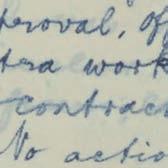 proval, of
tra work
contrac
No acti